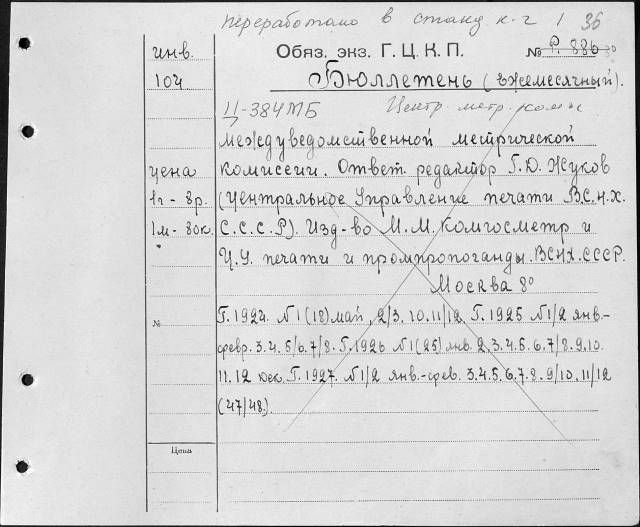 переработано в станд. к-г 1 36
инв.
104
Обяз. экз. Г.Ц.К.П. № Р. 886
Бюллетень (ежемесячный).
II-384МБ Центр. метр. комис
междуведомственной метрической
цена комиссии. Ответ. редактор Г.Ю. Жуков
1г - 8р. (Центральное Управление печати В.С.Н.Х.
1м - 80к. С.С.С.Р). Изд-во М.М. Комгосметр и
Ц.У. печати и промпропоганды. ВСНХ. СССР.
Москва 8°
№ Г. 1924. №1 (18) май, 2/3. 10. 11/12. Г. 1925 №1/2 янв-
февр. 3. 4. 5/6. 7/8. Г. 1926 №1 (25) янв. 2. 3. 4. 5. 6. 7/8. 9. 10.
11. 12 дек. Г. 1927. №1/2 янв.-фев. 3. 4. 5. 6. 7. 8. 9/10. 11/12
(47/48).
Цена